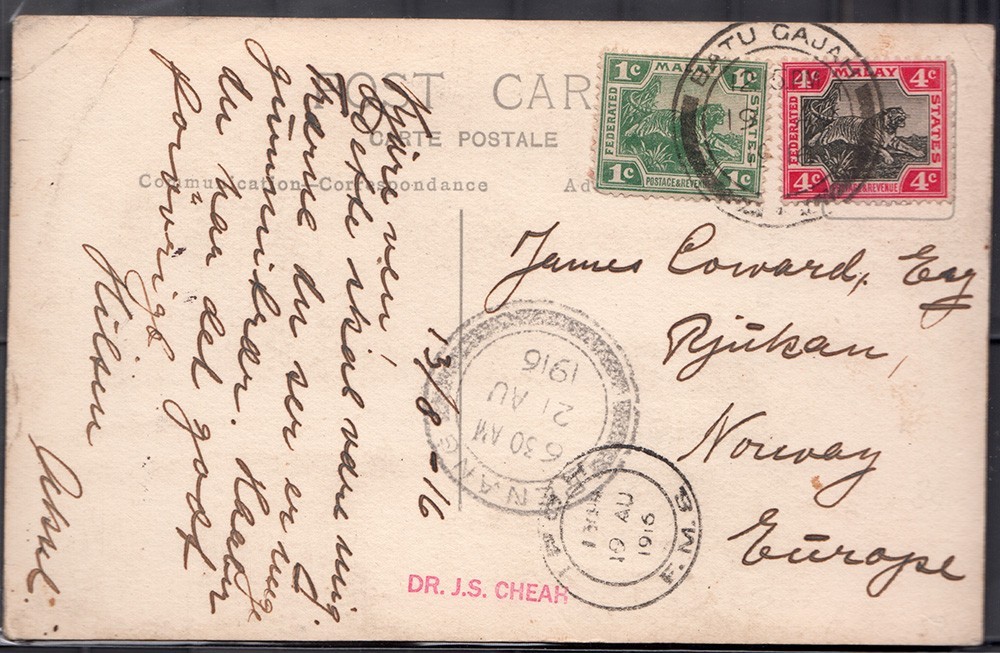 POST CAR
CARTE POSTALE
Communication-Correspondance
Ad
1c MA 1c
FEDERATED
STATES
POSTAGE & REVENUE
1c 1c
4c MALAY 4c
FEDERATED
STATES
POSTAGE & REVENUE
4c 4c
BATU GAJAH
19
13/8-16
Kjære ven
Dette skal være mig
trærne du ser er unge
gummitrær. Haaber
du har det godt
forøvrigt
Hilsen
James Coward, Esq
Rjukan,
Norway
Europe
PENANG
6 30 AM
21 AU
1916
IPOH
19 AU
1916
F.M.S
DR. J.S. CHEAH